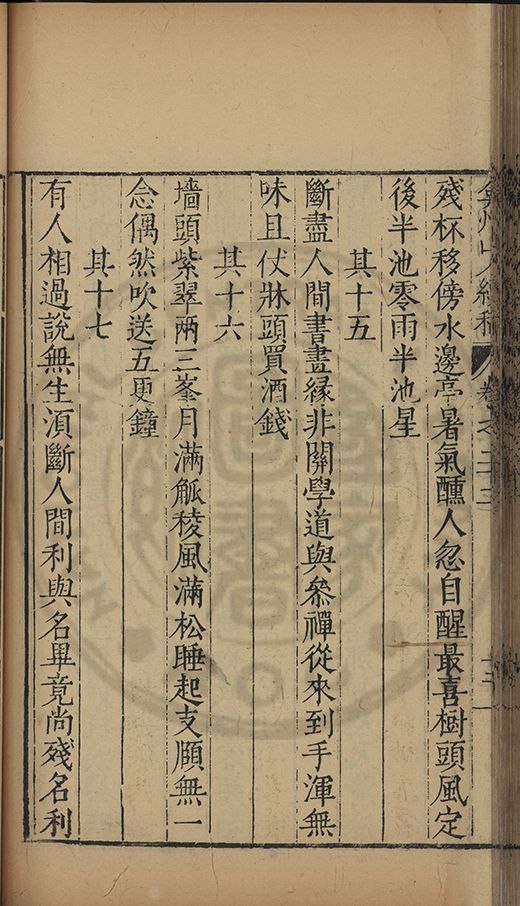 殘杯移傍水邊亭暑氣醺人忽自醒最喜樹頭風定
後半池零雨半池星
其十五
斷盡人間書畫緣非關學道與叅禪從來到手渾無
味且仗牀頭買酒錢
其十六
墻頭紫翠两三峯月滿觚稜風滿松睡起支頥無一
念偶然吹送五更鐘
其十七
有人相過說無生湏斷人間利與名畢竟尚殘名利